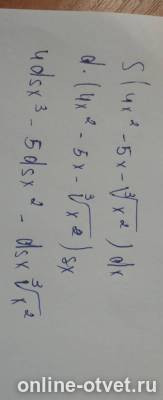 S(4x² - 5x - ∛x²) dx
d · (4x² - 5x - ∛x²) sx
4dsx³ - 5dsx² - dsx ∛x²
online-otvet.ru